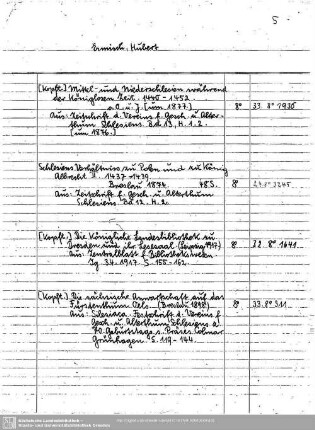 5
Ermisch, Hubert
[Kopft.] Mittel- und Niederschlesien während
der königlosen Zeit. 1440-1452.
o. O. u. J. [um. 1877] 8° 33. 8° 7930
Aus: Zeitschrift d. Vereins f. Gesch. u. Alter-
thum Schlesiens. Bd 13. H. 1. 2.
[um 1876.]
Schlesiens Verhältniss zu Polen und zu König
Albrecht II. 1437-1439.
Breslau 1874. 48 S. 8°
Aus: Zeitschrift f. Gesch. u. Alterthum
Schlesiens Bd 12. H. 2.
[Kopft.] Die Königliche Landesbibliothek zu
Dresden und ihr Lesesaal. (Leipzig 1917) 8° 22. 8° 1641
Aus: Zentralblatt f. Bibliothekswesen
Jg 34. 1917. S. 155-162.
[Kopft.] Die sächsische Anwartschaft auf das
Fürstenthum Oels. (Breslau 1898) 8° 33. 8° 311
Aus: Silesiaca. Festschrift d. Vereins f.
Gesch. u. Alterthum Schlesiens z.
70. Geburtstage s. Präses Colmar
Grünhagen. S. 119-144.